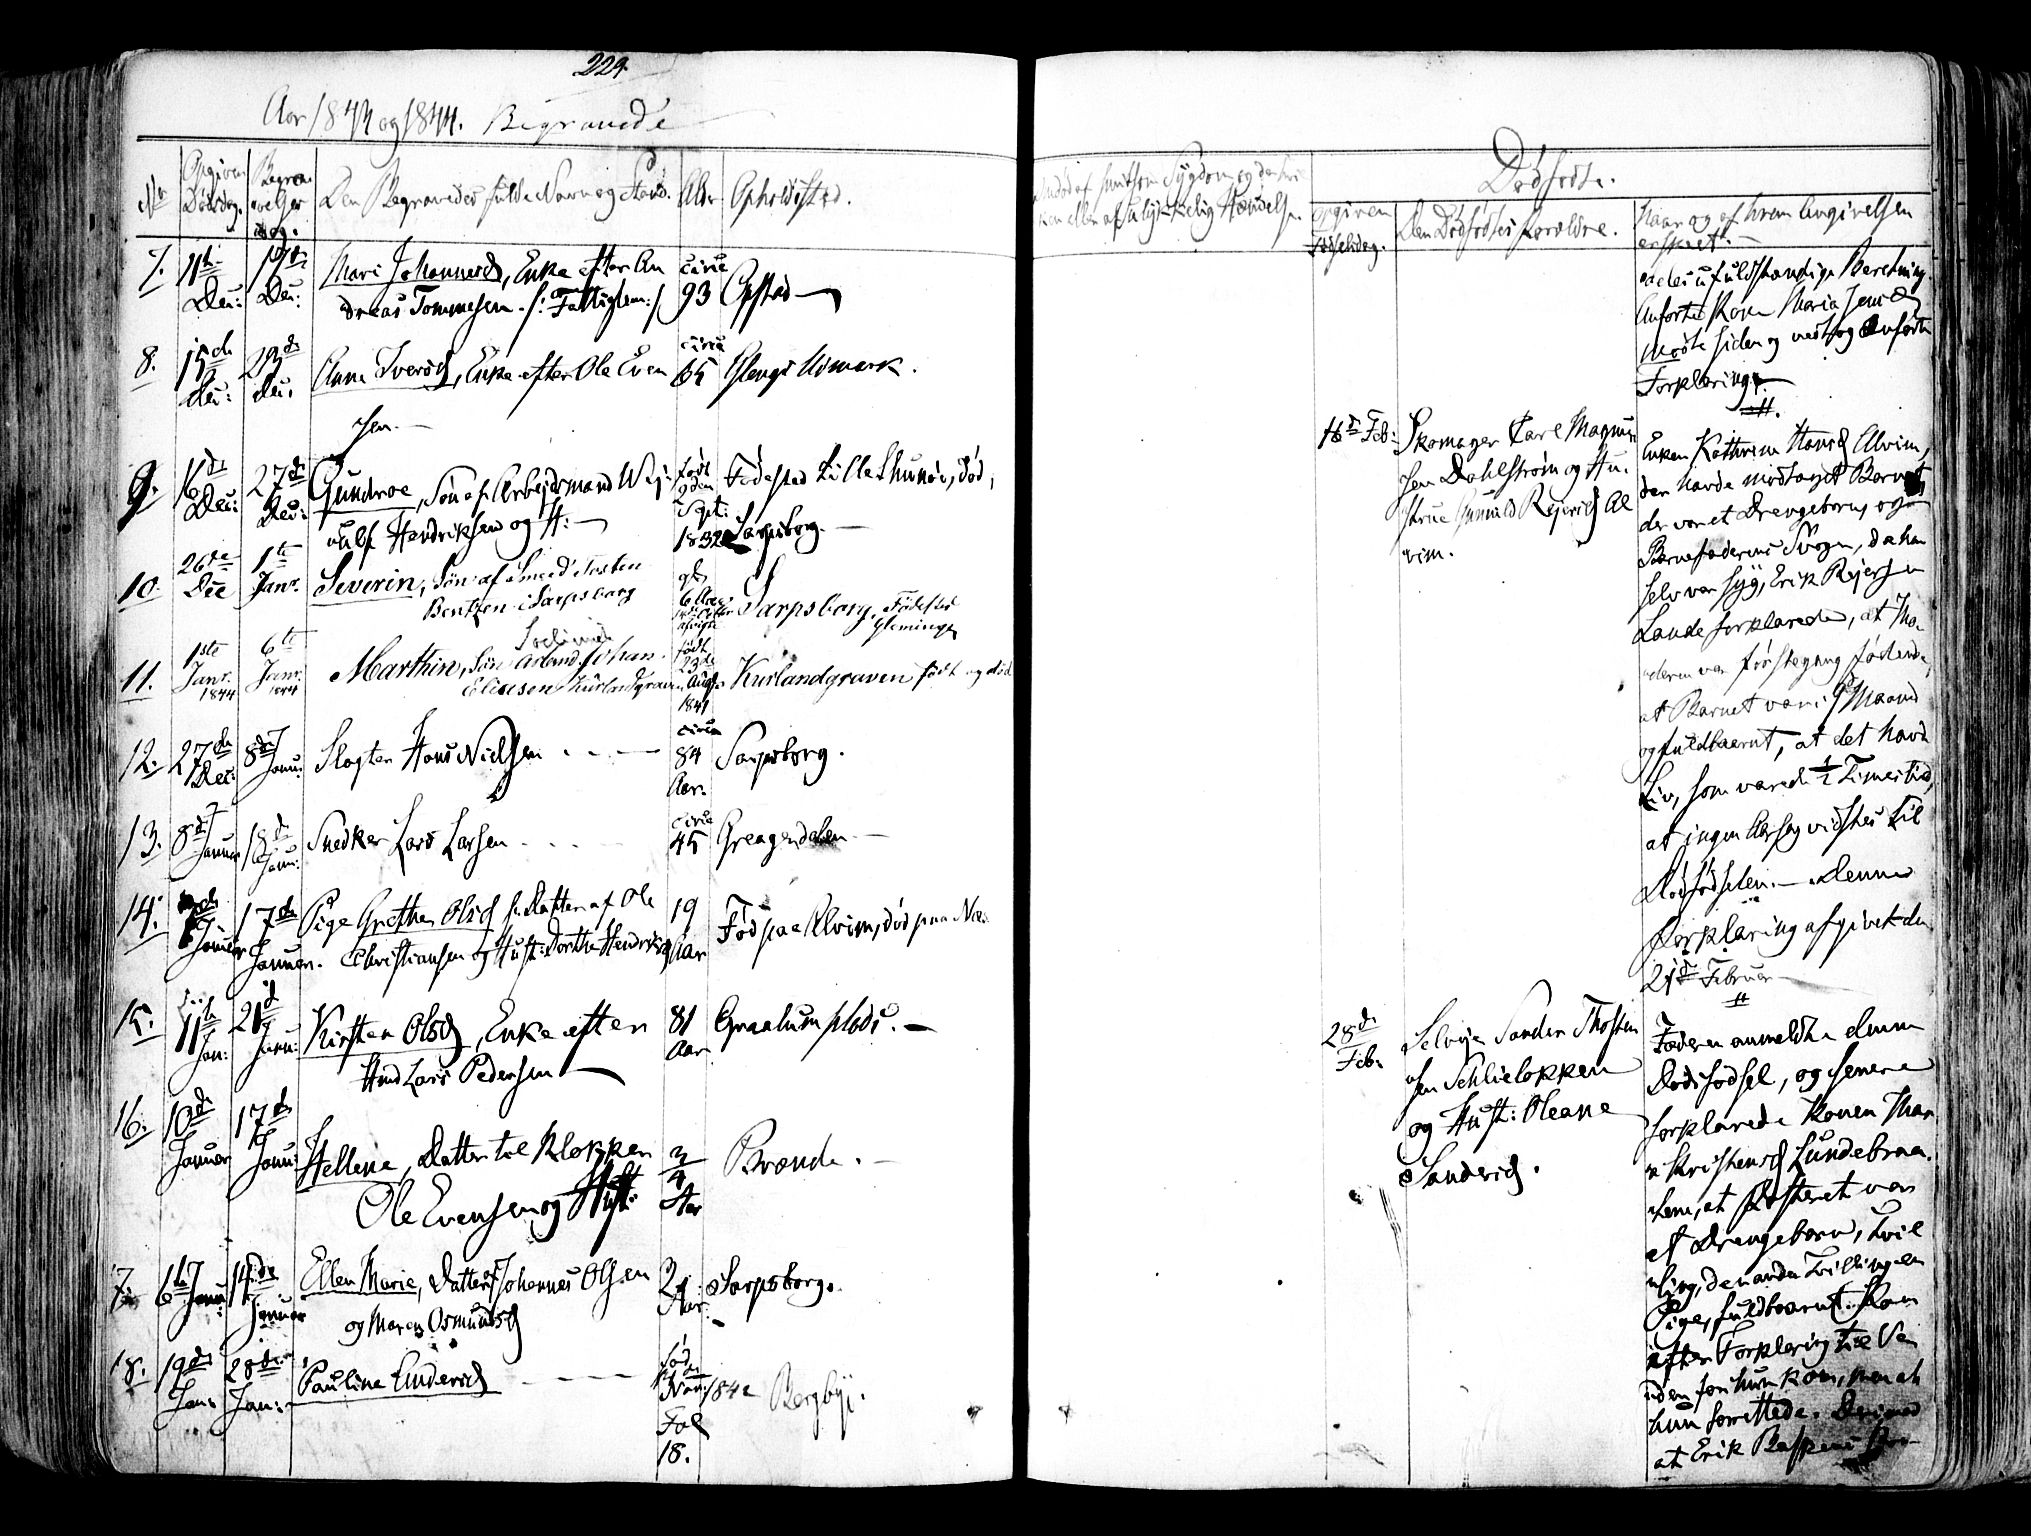 224.
Aar 1843 og 1844. Begravede
No
Opgiven Dødsdag.
Begravelsesdag.
Den Begravedes fulde Navn og Stand.
Alder
Opholdssted.
7. 11te Dec: 17de Dec: Mari Johannesd, Enke efter An circa
dreas Tommesen. /: Fattiglem :/ 93 Opstad
8. 15de Dec: 23de Dec. Anne Iversd, Enke efter Ole Even circa 65
sen.
9. 16de Dec: 27de Dec: Gundroe, Søn af Arbejdsmand
Hendriksen og H: født Sept: 1832 Fødested Lille død, Sarpsborg.
10. 26de Dec 1te Janr. Severin, Søn af Smed Torsten
Bentzen i Sarpsborg Sarpsborg, Fødested Glemminge
11. 1ste Janr. 1844 6te Janr. 1844 Marthin, Søn Johan
Eliesen, Kurlandgraven født 23de Aug. 1841 Kurlandgraven født og død
12. 27de Dec: 8de Janu: Slagter Hans Nielsen circa 84 Aar. Sarpsborg.
13. 8de Januar 18de Janu: Snedker Lars Larsen circa 45
14. Januar 17de Januar. Pige Grethe Olsd Datter af Ole
Christiansen og Hust: Dorthe Hendriksd 19 Aar Fød paa Alvim, død paa
15. 11te Jan: 21d Janu: Kirsten Olsd, Enke efter
Lars Pedersen 81 Aar Graalumplads.
16. 10de Januar 17de Janu: Hellene, Datter til Klokker
Ole Evensen og Hust: 3/4 Aar Brænde.
7. 6te Janu: Januar Ellen Marie, Datter af Johannes Olsen
og Maren Osmundsd 2 Aar. Sarpsborg.
18. 19de Jan: 28de Jan: Pauline Endersd Fød Nov: 1842 Fol 18. Bergby.
Dødfødte.
og den
ken eller af ulykkelig Hændelse.
Opgiven Fødselsdag.
Den Dødfødtes Forældre.
Naar og af hvem Angivelsen
er skeet.
ufuldstændige Beretning
Anførte Kone Maria Jensd
siden og anførte
Forklaring
16d Feb: Skomager Carl Magnus
sen Dahlstrøm og Hu-
strue Gunnild Reiersd Al
vim.
Enken Kathrine Hansd Alvim,
der havde modtaget Barnet,
der var et Drengebarn, og
Barnefaderens Svoger, da han
selv var syg, Erik Reiersen
Lande forklarede, at Mo-
deren var første gang fødende,
at Barnet var i 9d Maaned
og fuldbaaret, at det havde
Liv, som varede 1/2 Times tid,
at ingen Aarsag vidstes til
Dødfødselen. — Denne
Forklaring afgivet den
21d Februar
28de Feb: Selveje Sander Thosten
sen Schlieløkken
og Hust: Oleane
Sandersd.
Faderen anmeldte denne
Dødsfødsel, og senere
forklarede Konen Mar
Kristensd Lundebraa
ten, at Fosteret var
et Drengebarn, Tvil
ling, den anden Tvilling en
Pige, fuldbaaret. Kom
efter Forklaring
uden før hun kom, men at
hun forrettede. Derimod
at Erik